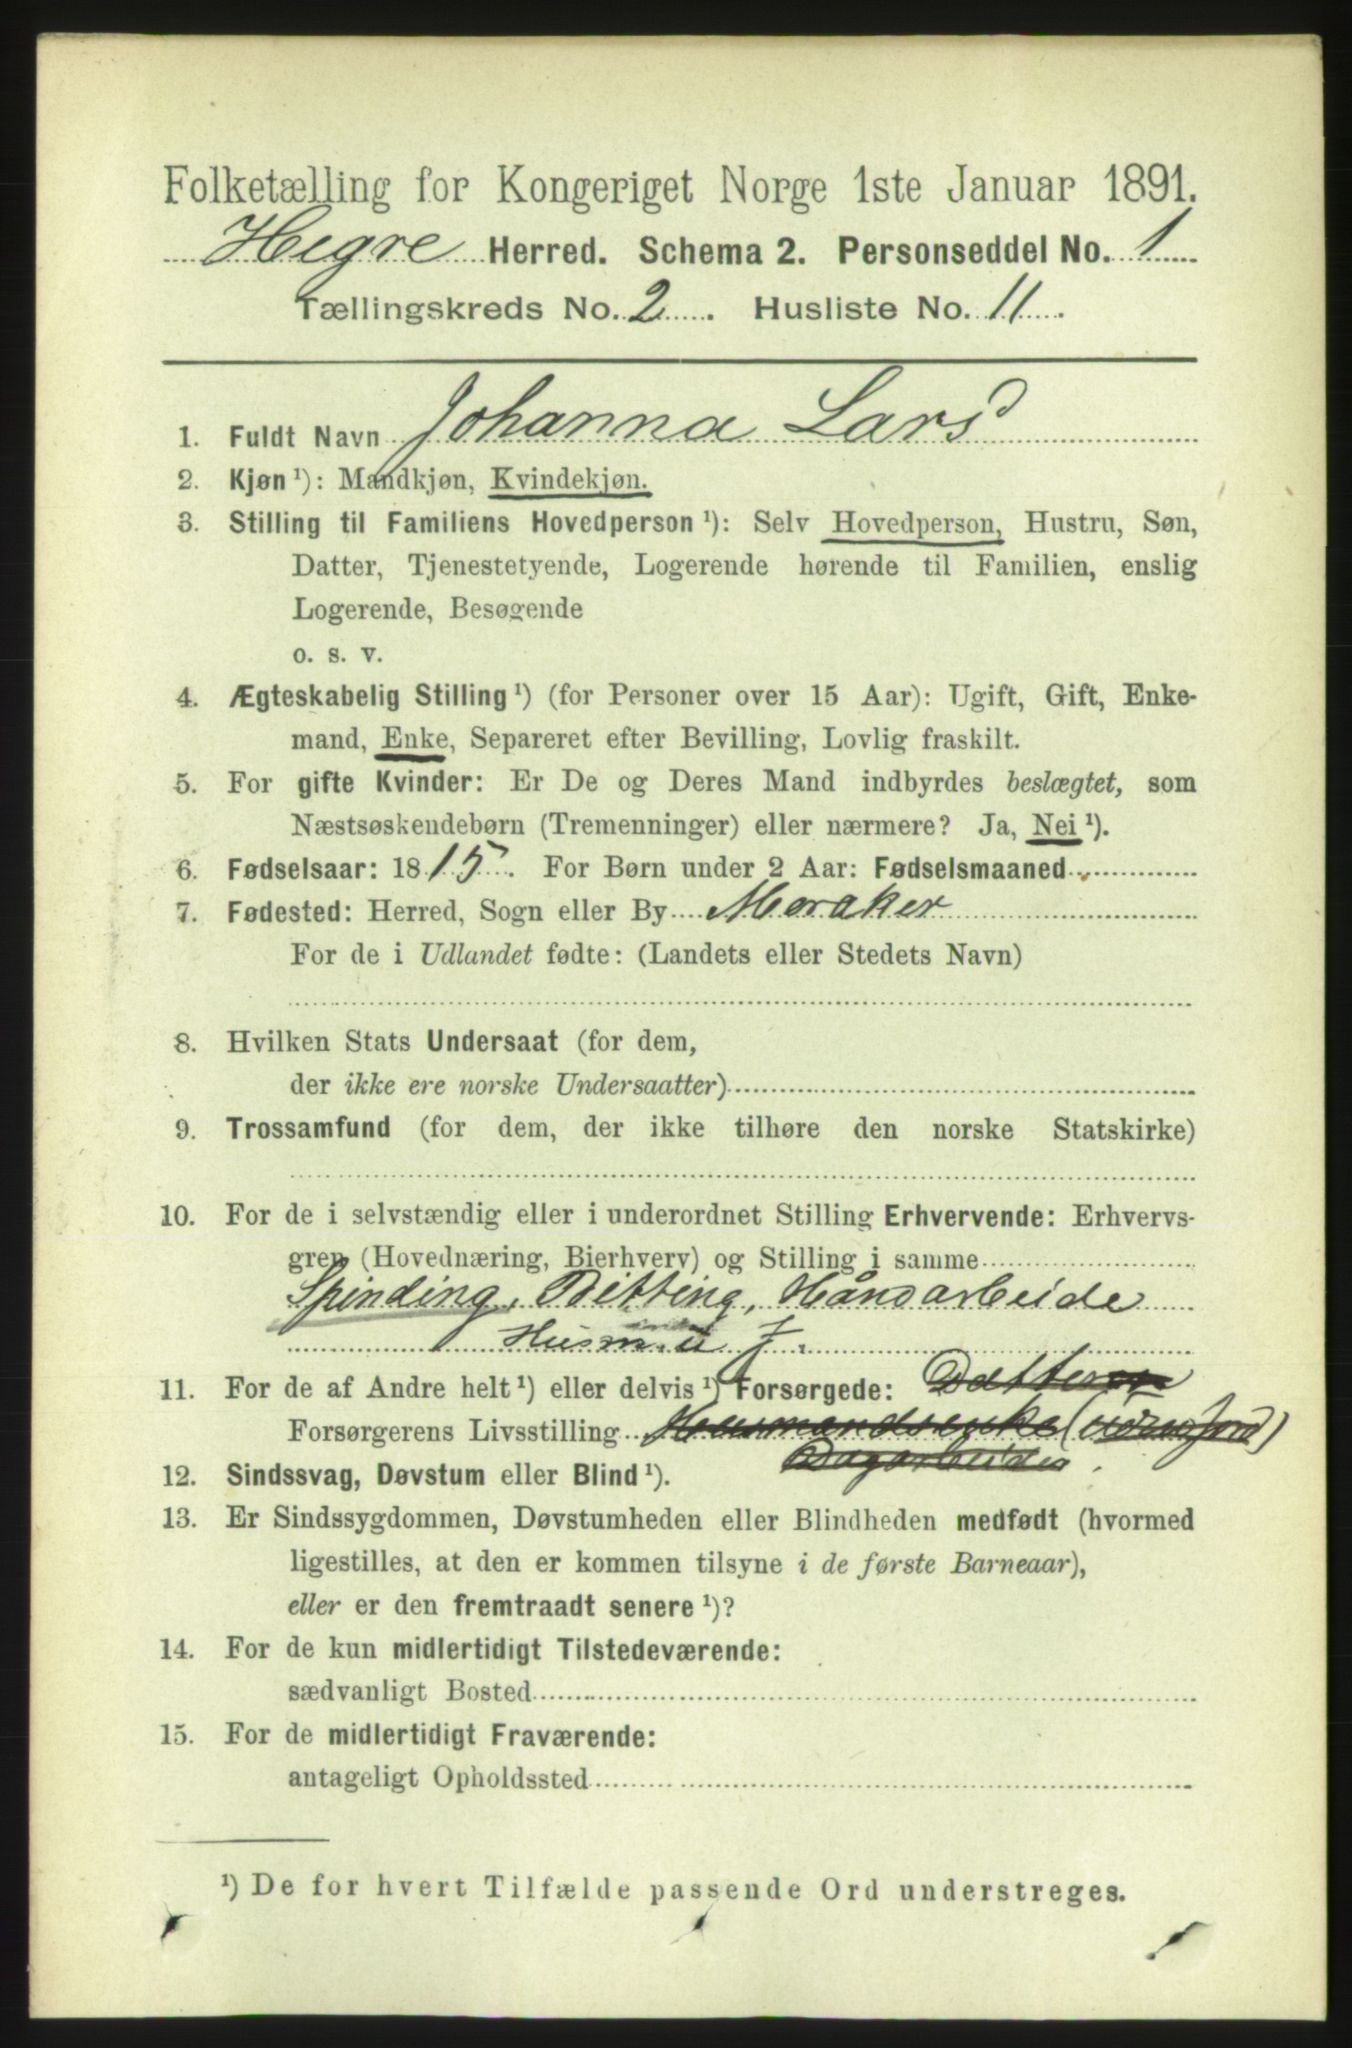 Folketælling for Kongeriget Norge 1ste Januar 1891.
Hegre Herred. Schema 2. Personseddel No. 1
Tællingskreds No. 2. Husliste No. 11.
1. Fuldt Navn Johanna Larsd
2. Kjøn ¹): Mandkjøn, Kvindekjøn.
3. Stilling til Familiens Hovedperson ¹): Selv Hovedperson, Hustru, Søn,
Datter, Tjenestetyende, Logerende hørende til Familien, enslig
Logerende, Besøgende
o. s. v.
4. Ægteskabelig Stilling ¹) (for Personer over 15 Aar): Ugift, Gift, Enke-
mand, Enke, Separeret efter Bevilling, Lovlig fraskilt.
5. For gifte Kvinder: Er De og Deres Mand indbyrdes beslægtet, som
Næstsøskendebørn (Tremenninger) eller nærmere? Ja, Nei ¹).
6. Fødselsaar: 1815. For Børn under 2 Aar: Fødselsmaaned
7. Fødested: Herred, Sogn eller By Meraker
For de i Udlandet fødte: (Landets eller Stedets Navn)
8. Hvilken Stats Undersaat (for dem,
der ikke ere norske Undersaatter)
9. Trossamfund (for dem, der ikke tilhøre den norske Statskirke)
10. For de i selvstændig eller i underordnet Stilling Erhvervende: Erhvervs-
gren (Hovednæring, Bierhverv) og Stilling i samme
Spinding, Bitting, Håndarbeide
Husm. u J.
11. For de af Andre helt ¹) eller delvis ¹) Forsørgede: Datteren
Forsørgerens Livsstilling Husmandsenke (uden Jord)
Dagarbeider.
12. Sindssvag, Døvstum eller Blind ¹).
13. Er Sindssygdommen, Døvstumheden eller Blindheden medfødt (hvormed
ligestilles, at den er kommen tilsyne i de første Barneaar),
eller er den fremtraadt senere ¹)?
14. For de kun midlertidigt Tilstedeværende:
sædvanligt Bosted
15. For de midlertidigt Fraværende:
antageligt Opholdssted
¹) De for hvert Tilfælde passende Ord understreges.